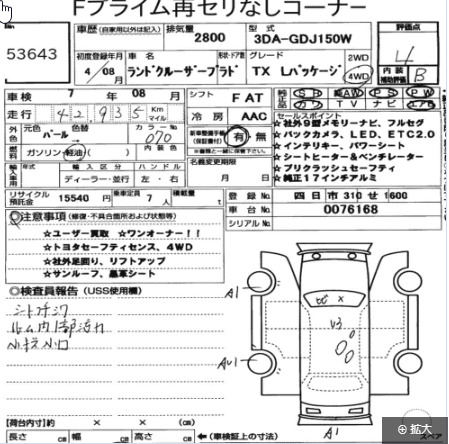 Fプライム再セリなしコーナー
53643
車歴 (自家用以外は記入) 排気量 2800 型式 3DA-GDJ150W 評価点 4
初度登録年月 4/08月 車名 ランドクルーザープラド 形状・ドア数 グレード TX Lパッケージ 2WD 4WD 内装補助評価 B
車検 7年 08月 シフト FAT SR AW PS PW
走行 42,935 Km マイル 冷房 AAC カワ TV ナビ エアB
外色 元色 パール 色替 カラーNo 070 新車整備手帳(保証書付) 有・無
燃料 ガソリン・軽油 内装色 ※書類と一緒に保管
名義変更期限 月 日
輸入車用 年式 輸入区分 ディーラー・並行 ハンドル 左・右
セールスポイント
★社外9型メモリーナビ、フルセグ
★バックカメラ、LED、ETC2.0
★インテリキー、パワーシート
★シートヒーター&ベンチレーター
★プリクラッシュセーフティ
★純正17インチアルミ
リサイクル預託金 15540円 乗車定員 7人 積載量 t
登録No. 四日市 310 せ 1600
車台No. 0076168
シリアルNo.
◎注意事項 (修復・不具合箇所および状態等)
☆ユーザー買取 ☆ワンオーナー!!
☆トヨタセーフティセンス、4WD
☆社外足回り、リフトアップ
☆サンルーフ、黒革シート
◎検査員報告 (USS使用欄)
シートシワ
小キズ小凹
A1
ヒビ ×
U3
AU1
A1
【荷台内寸】 約 × × (cm)
長さ cm 幅 cm 高さ cm ←(車検証上の寸法)
スペア
拡大